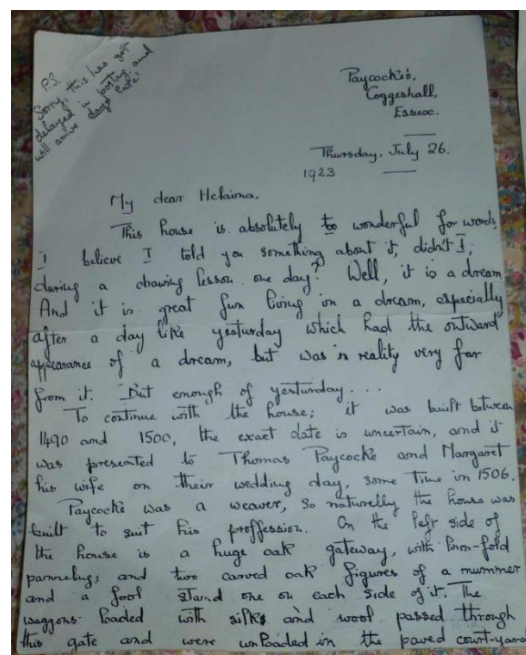 P.S.
Sorry, this has got
delayed in posting and
will arrive days late!
Paycocke's,
Coggeshall,
Essex.
Thursday, July 26.
1923
My dear Helaina,
This house is absolutely to wonderful for words,
I believe I told you something about it, didn't I,
during a drawing lesson one day? Well, it is a dream.
And it is great fun living in a dream, especially
after a day like yesturday which had the outward
appearance of a dream, but was in reality very far
from it. But enough of yesturday...
To continue with the house; it was built between
1490 and 1500, the exact date is uncertain, and it
was presented to Thomas Paycocke and Margaret
his wife on their wedding day, some time in 1506.
Paycocke was a weaver, so naturely the house was
built to suit his proffession. On the left side of
the house is a huge oak gateway, with linen-fold
panneling; and two carved oak figures of a mummer
and a fool stand one on each side of it. The
waggons loaded with silks and wool passed through
this gate and were unloaded in the paved court-yard